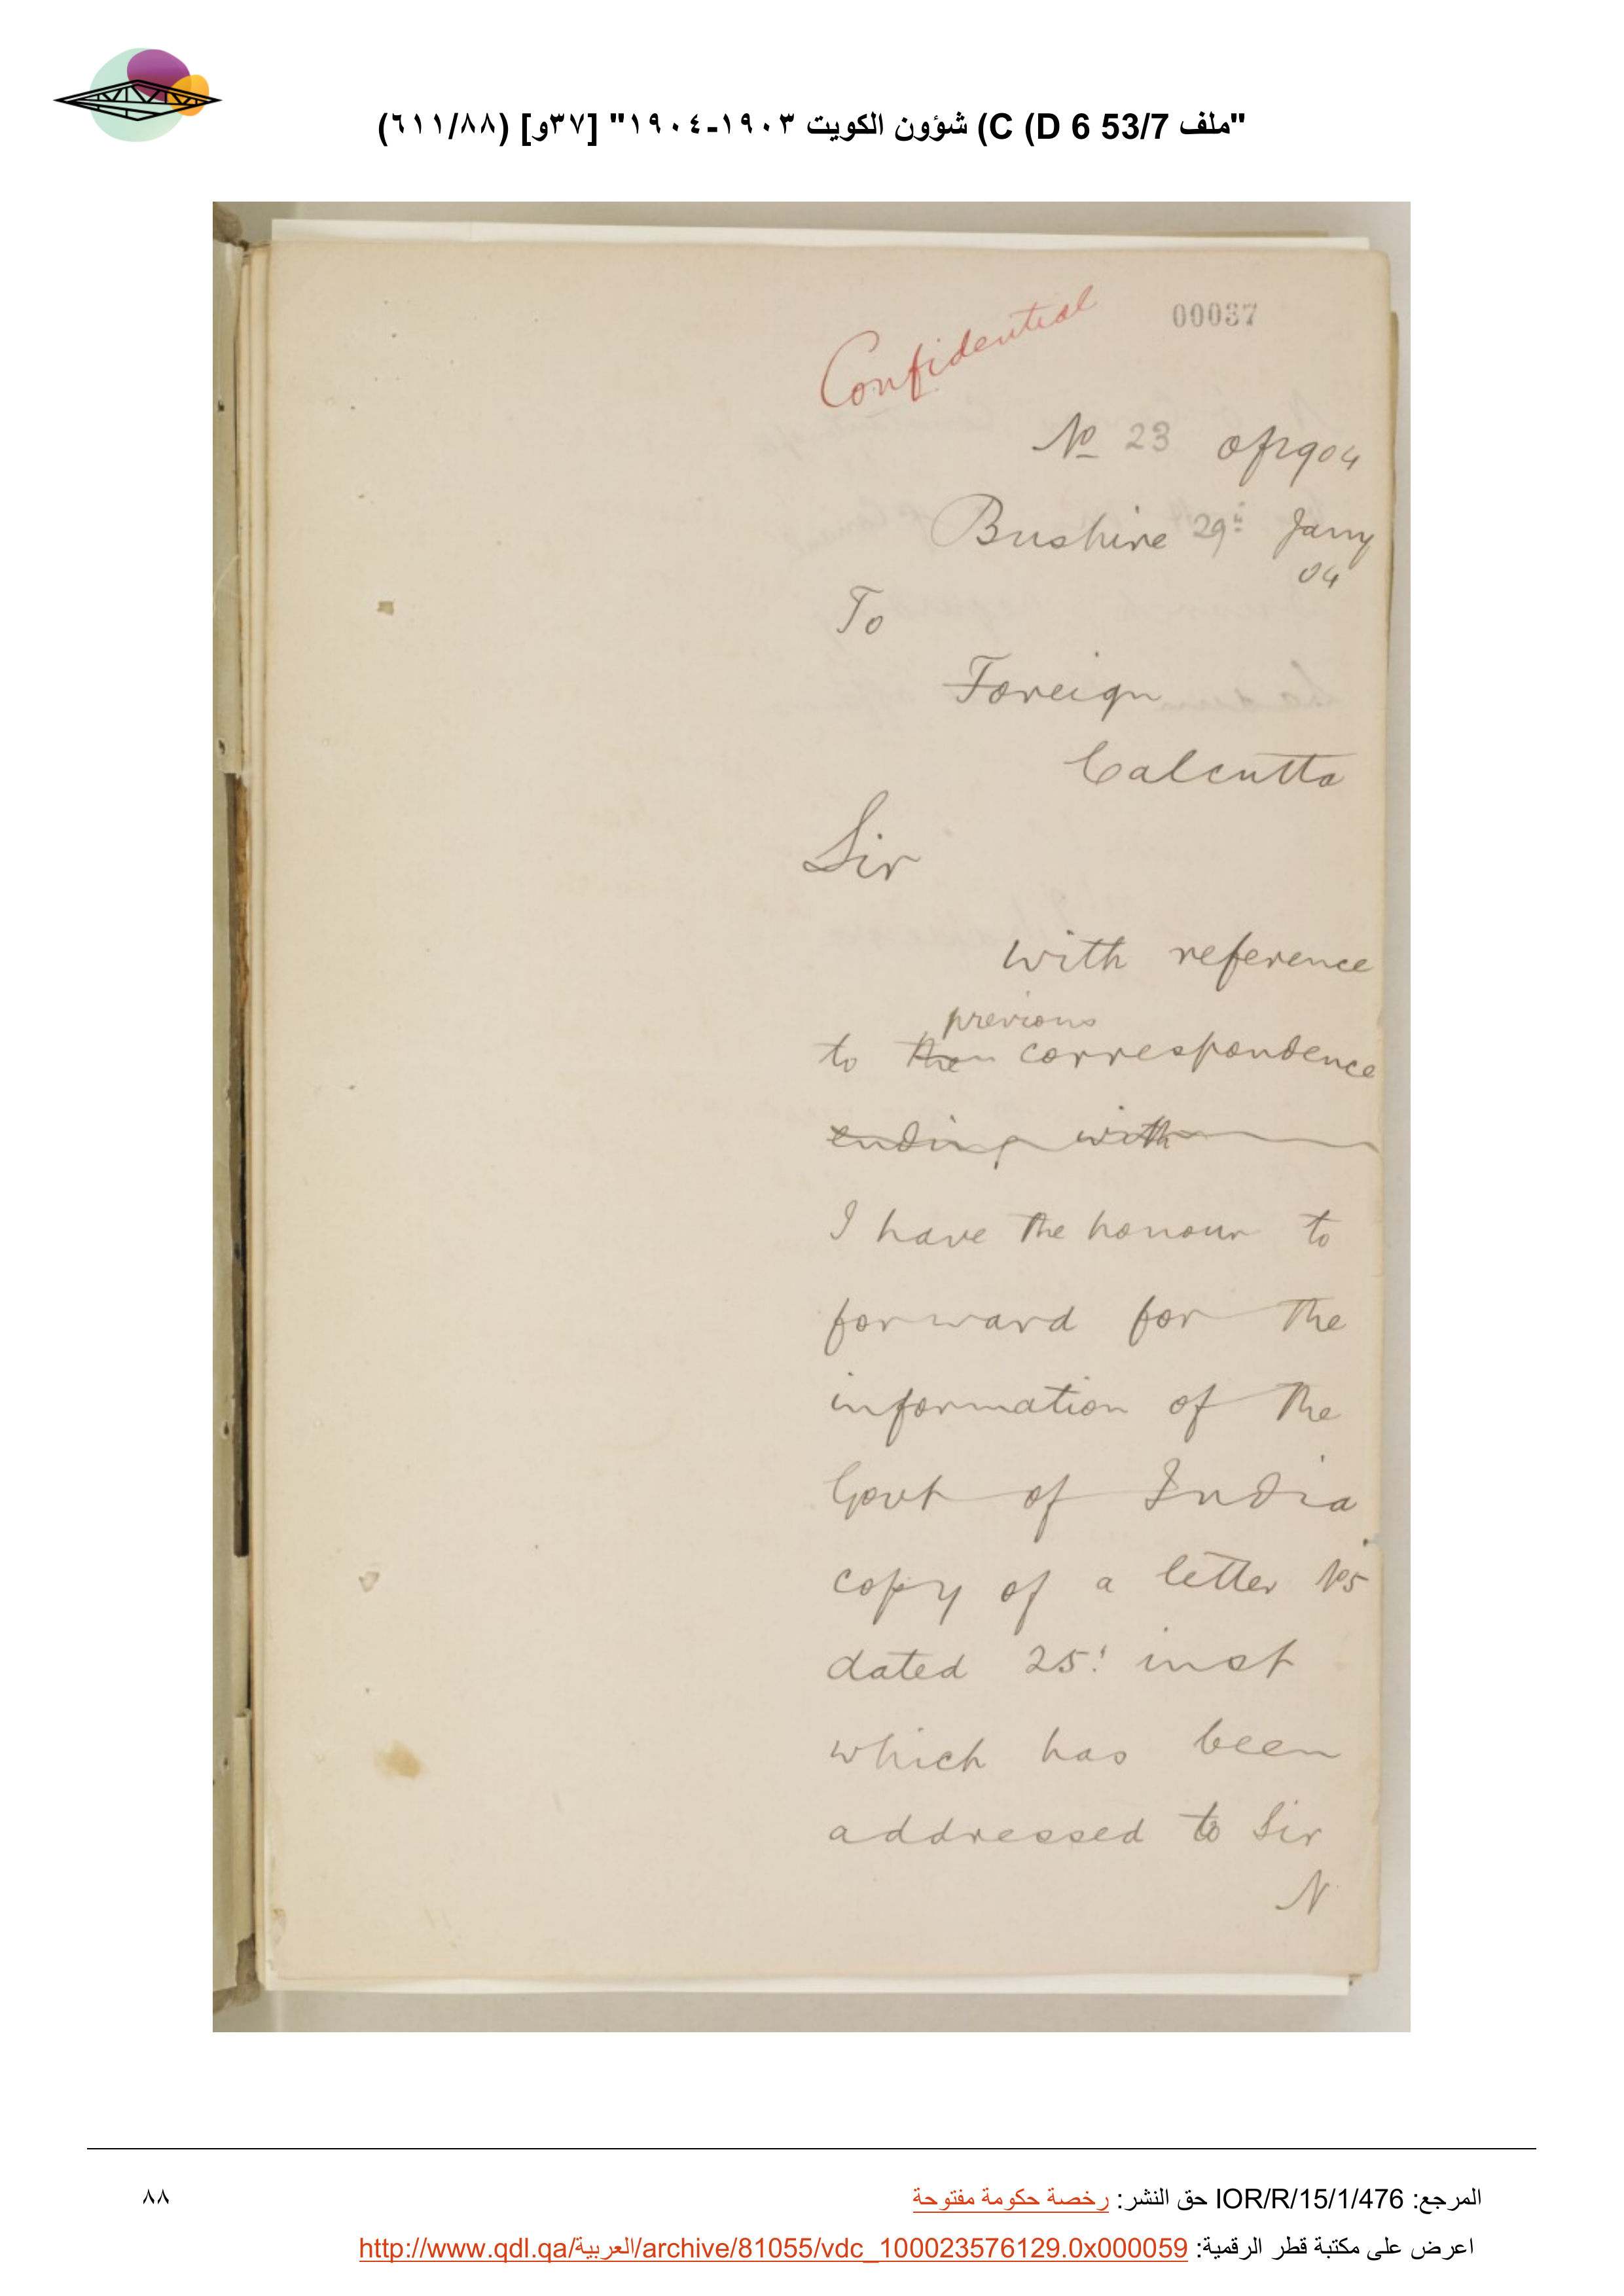 "ملف 53/7 C (D 6) شؤون الكويت ١٩٠٣-١٩٠٤" [٣٧و] (٦١١/٨٨)
00037
Confidential
No 23 of 1904
Bushire 29th Jany
04
To
Foreign
Calcutta
Sir
With reference
previous
to the correspondence
ending with
I have the honour to
forward for the
information of the
Govt of India
copy of a letter No 5
dated 25t inst
which has been
addressed to Sir
N
المرجع: IOR/R/15/1/476 حق النشر: رخصة حكومة مفتوحة
٨٨
اعرض على مكتبة قطر الرقمية: http://www.qdl.qa/العربية/archive/81055/vdc_100023576129.0x000059